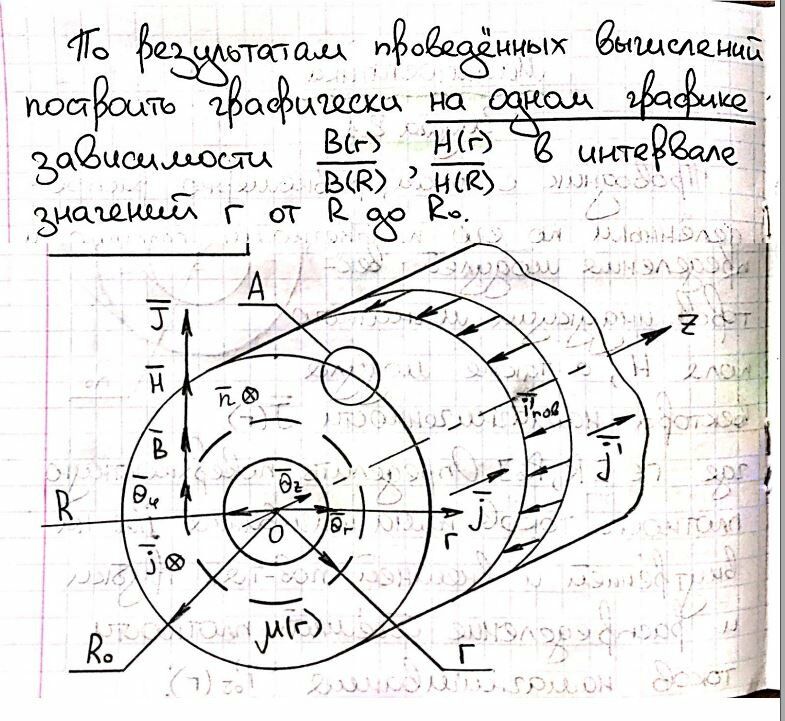 По результатам проведённых вычислений
построить графически на одном графике
зависимости B(r)/B(R), H(r)/H(R) в интервале
значений r от R до R₀.
A
J̅
z
H̅
n̅ ⊗
i̅'пов
B̅
j̅'
θ̅φ
θ̅z
R
j̅
O
θ̅r
r
j̅ ⊗
μ(r)
R₀
r